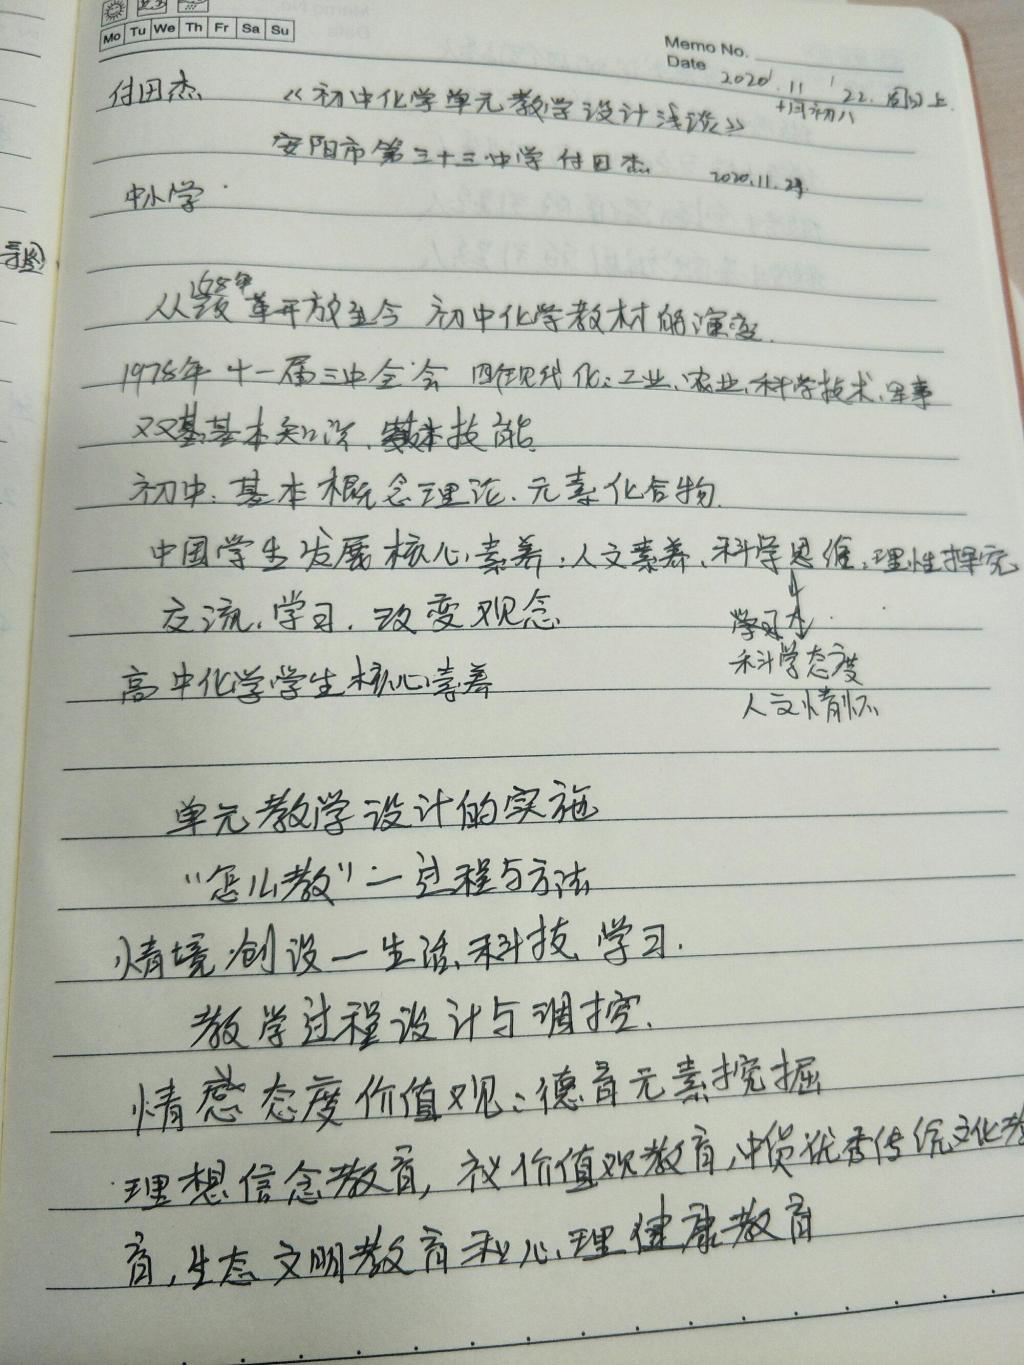 Mo Tu We Th Fr Sa Su
Memo No.
Date 2020.11.22. 周日上
十月初八
付田杰 《初中化学单元教学设计浅谈》
安阳市第三十三中学 付田杰 2020.11.22
中小学
从改革开放至今 初中化学教材的演变.
1978年十一届三中全会 四个现代化:工业、农业、科学技术、军事
双基基本知识、基本技能
初中:基本概念理论、元素化合物.
中国学生发展核心素养:人文素养、科学思维、理性探究
交流、学习、改变观念
学习力
科学态度
高中化学学生核心素养
人文情怀
单元教学设计的实施
“怎么教”—过程与方法
情境创设—生活、科技、学习.
教学过程设计与调控.
情感态度价值观:德育元素挖掘
理想信念教育,核价值观教育,中货优秀传统文化教
育,生态文明教育和心理健康教育